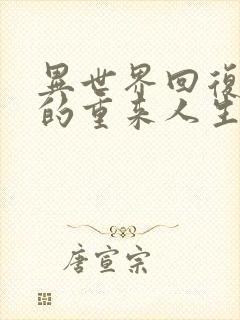 異世界回復
的重来人生
唐宣宗